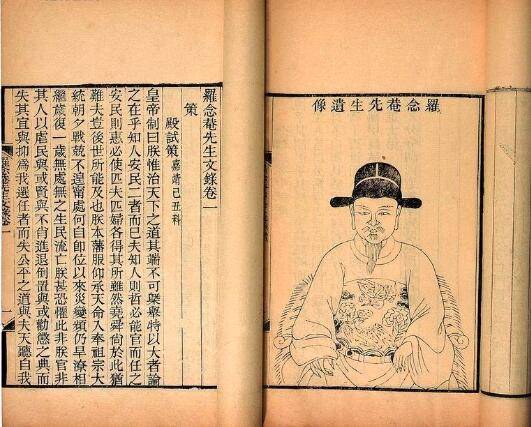 羅念菴先生遺像
羅念菴先生文錄卷一
策
殿試策 嘉靖己丑科
皇帝制曰朕惟治天下之道其端不可槩舉特以大者論
之在乎知人安民二者而已夫知人則哲必能官而任之
安民則惠必使匹夫匹婦各得其所雖然堯舜尚於此猶
難夫豈後世所能及也朕本藩服仰承天命入奉祖宗大
統朝夕戰兢不遑甯處何自即位以來災變頻仍旱潦相
繼歲復一歲無處無之生民流亡朕甚恐懼此非朕官非
其人以虐民與或賢與不肖進退倒置與或勸懲之典而
失其宜與抑為我選任者而失公平之道與夫天聽自我